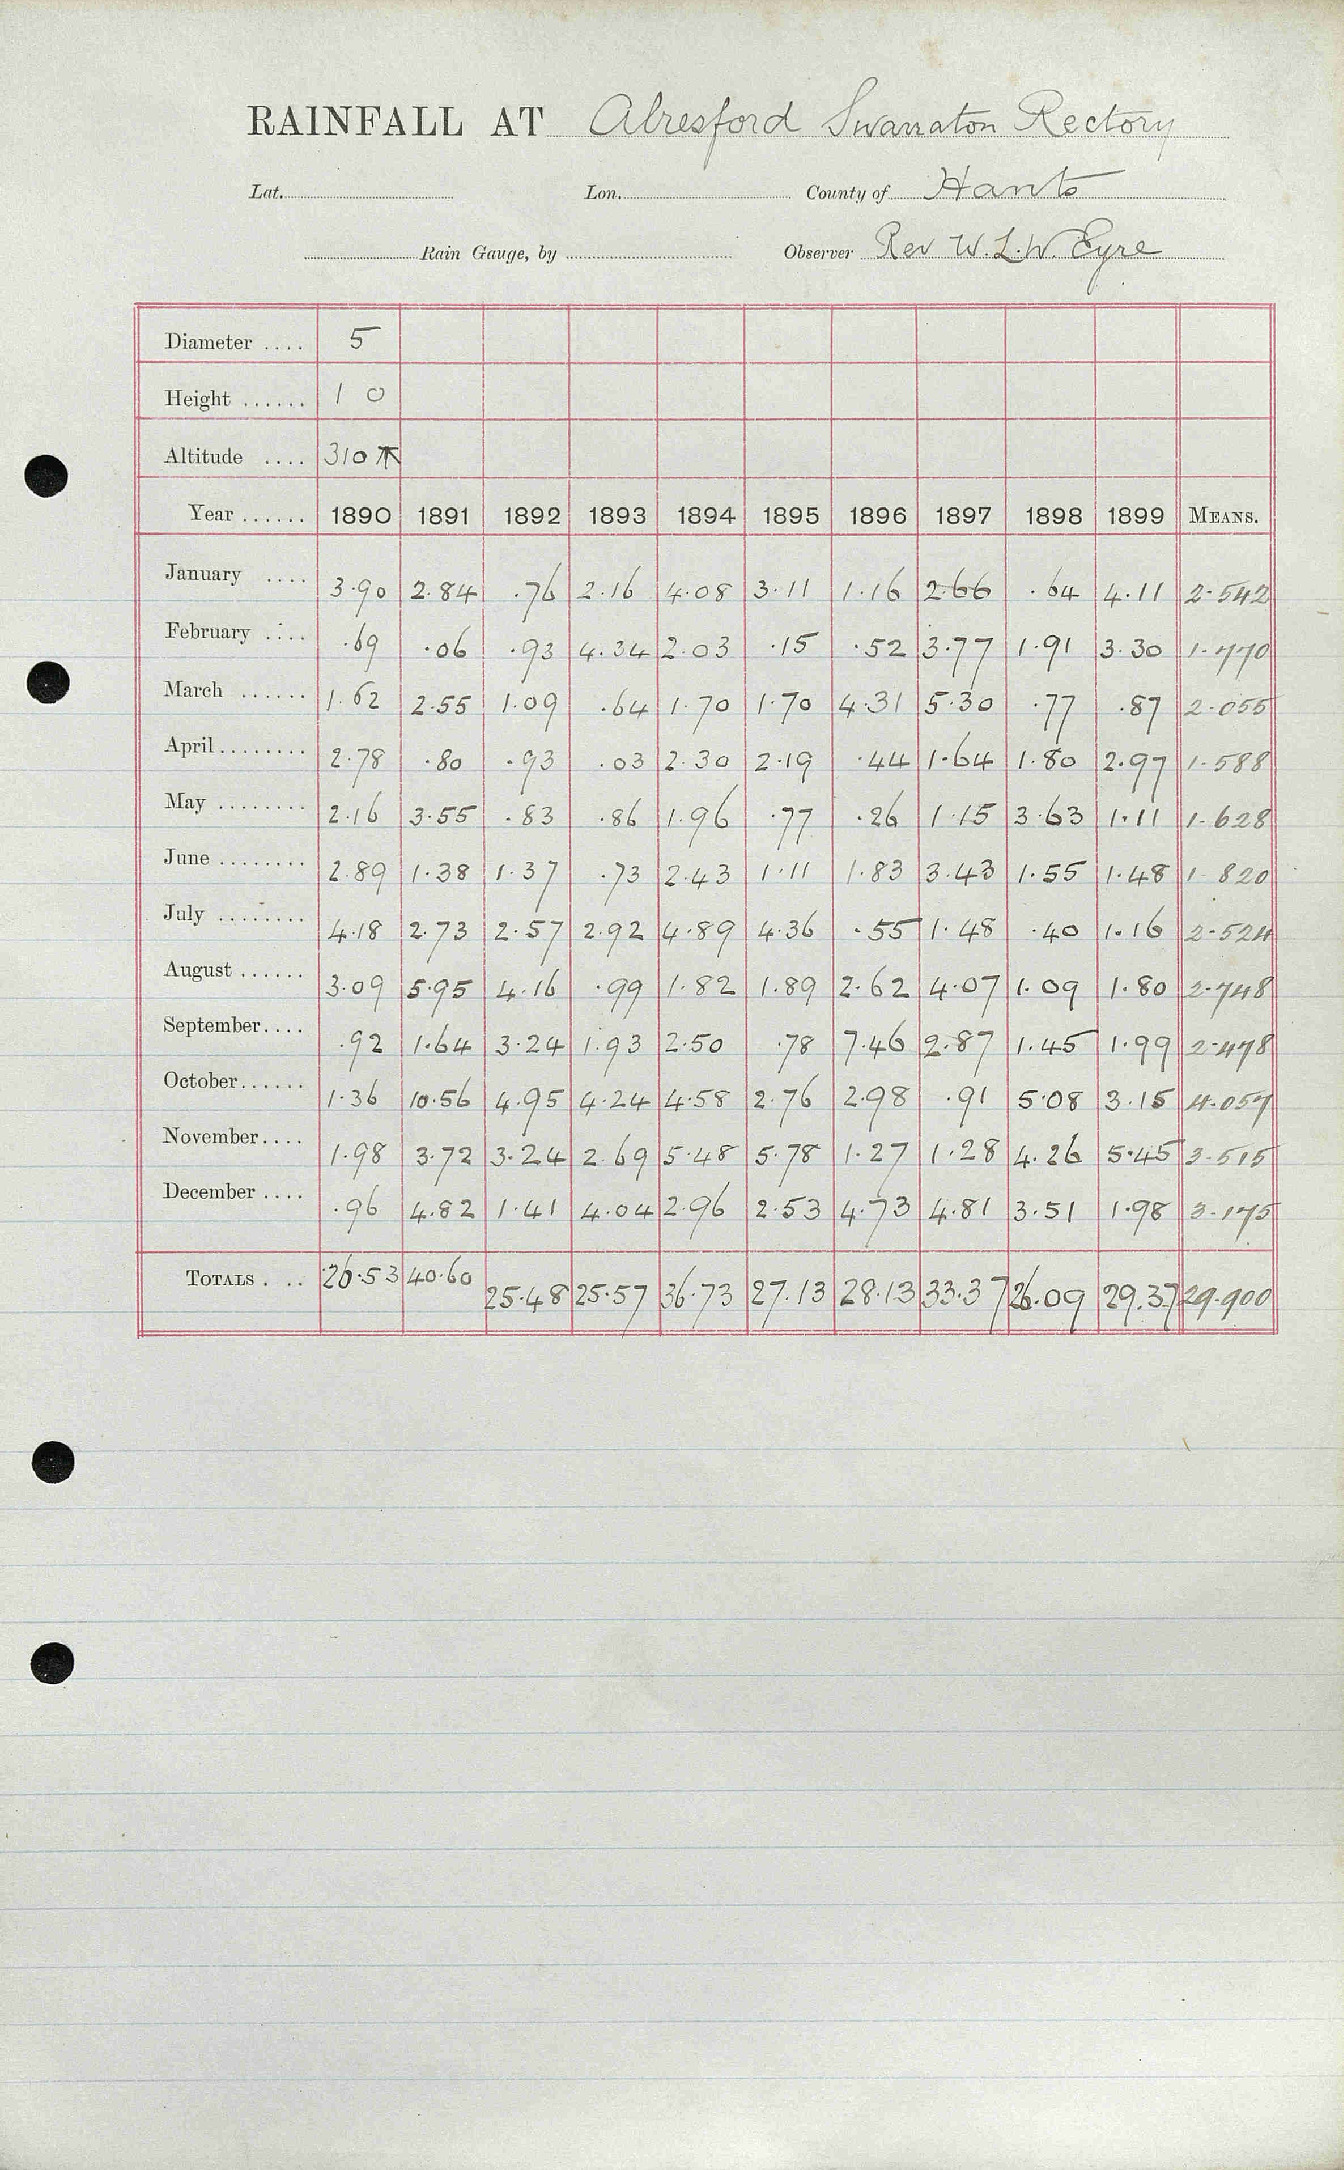 RAINFALL AT Alresford Swarraton Rectory
Lat. Lon. County of Hants
Rain Gauge, by Observer Rev W. L. W. Eyre
Diameter .... 5
Height ...... 1 0
Altitude .... 310
Year ...... 1890 1891 1892 1893 1894 1895 1896 1897 1898 1899 MEANS.
January .... 3.90 2.84 .76 2.16 4.08 3.11 1.16 2.66 .64 4.11 2.542
February .... .69 .06 .93 4.34 2.03 .15 .52 3.77 1.91 3.30 1.770
March ...... 1.62 2.55 1.09 .64 1.70 1.70 4.31 5.30 .77 .87 2.055
April........ 2.78 .80 .93 .03 2.30 2.19 .44 1.64 1.80 2.97 1.588
May ........ 2.16 3.55 .83 .86 1.96 .77 .26 1.15 3.63 1.11 1.628
June ........ 2.89 1.38 1.37 .73 2.43 1.11 1.83 3.43 1.55 1.48 1.820
July ........ 4.18 2.73 2.57 2.92 4.89 4.36 .55 1.48 .40 1.16 2.524
August ...... 3.09 5.95 4.16 .99 1.82 1.89 2.62 4.07 1.09 1.80 2.748
September.... .92 1.64 3.24 1.93 2.50 .78 7.46 2.87 1.45 1.99 2.478
October...... 1.36 10.56 4.95 4.24 4.58 2.76 2.98 .91 5.08 3.15 4.057
November.... 1.98 3.72 3.24 2.69 5.48 5.78 1.27 1.28 4.26 5.45 3.515
December .... .96 4.82 1.41 4.04 2.96 2.53 4.73 4.81 3.51 1.98 3.175
TOTALS . .. 26.53 40.60 25.48 25.57 36.73 27.13 28.13 33.37 26.09 29.37 29.900